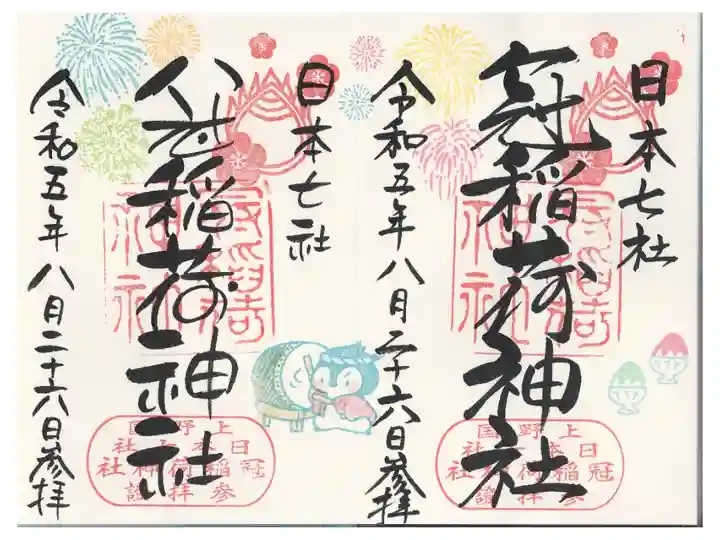 日本七社
冠稲荷神社
令和五年八月二十六日参拝
上野国
日本七社
冠稲荷神社
参拝證
日本七社
稲荷神社
令和五年八月二十六日参拝
上野国
日本七社
冠稲荷神社
参拝證